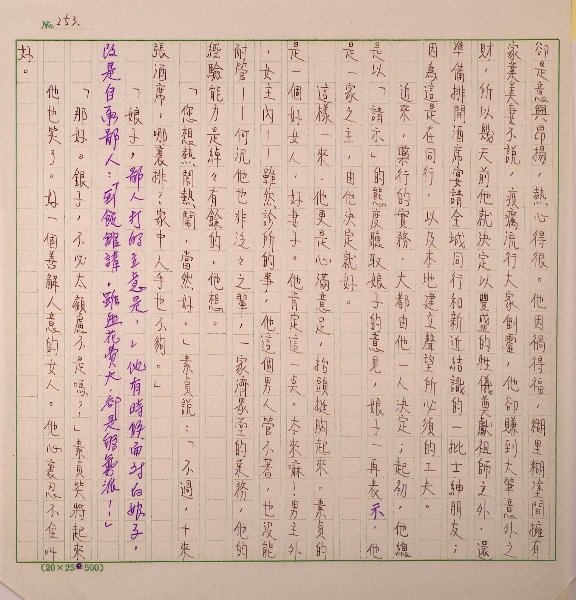 No. 253.
卻是意興昂揚，熱心得很。他因禍得福，糊里糊塗間擁有
家業美妻不說，疫癘流行大家倒霉，他卻賺到大筆意外之
財，所以幾天前他就決定以豐盛的牲儀奠獻祖師之外，還
準備排開酒席宴請全城同行和新近結識的一批士紳朋友；
因為這是在同行，以及本地建立聲望所必須的工夫。
近來，藥行的實務，大都由他一人決定；起初，他總
是以「請示」的態度聽取娘子的意見，娘子一再表示，他
是一家之主，由他決定就好。
這樣一來，他更是心滿意足，抬頭挺胸起來。素貞的
是一個好女人，好妻子。他肯定這一點。本來嘛！男主外
，女主內——雖然診所的事，他這個男人管不著，也沒能
耐管——何況他也非泛々之輩，一家濟眾堂的業務，他的
經驗能力是綽々有餘的，他想。
「您想熱鬧熱鬧，當然好。」素貞說：「不過，十來
張酒席，哪裏排？家中人手也不夠。」
「娘子，鄙人打的主意是，」他有時候面對白娘子，
改是自稱鄙人：「到館雖請，雖然花費大，卻是夠氣派！」
「那好。銀子，不必太顧慮不是嗎？」素貞笑將起來
他也笑了。好一個善解人意的女人。他心裏忍不住叫
好。
(20×25=500)